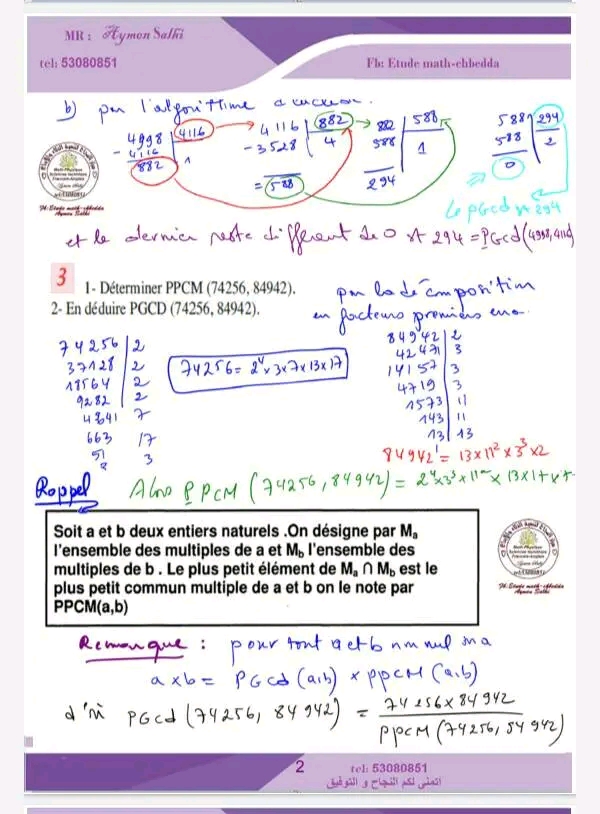 MR : Aymon Salhi
tel: 53080851
Fb: Etude math-chbedda
b) par l'algorithme
4998 | 4116
- 4116 | 1
882
4116 | 882
- 3528 | 4
= 588
882 | 588
588 | 1
294
588 | 294
588 | 2
0
Le PGcd st 294
et le dernier reste different de 0 st 294 = PGcd(4998,4116)
3
1- Déterminer PPCM (74256, 84942).
2- En déduire PGCD (74256, 84942).
par la décomposition
en facteurs premiers on a
74256 | 2
37128 | 2
18564 | 2
9282 | 2
4641 7
663 17
51 3
74256 = 2⁴ x 3 x 7 x 13 x 17
84942 | 2
42471 | 3
14157 | 3
4719 | 3
1573 | 11
143 | 11
13 | 13
84942 = 13 x 11² x 3³ x 2
Rappel
Alors PPCM (74256, 84942) = 2⁴x3³x11²x 13x17x7
Soit a et b deux entiers naturels .On désigne par Mₐ
l'ensemble des multiples de a et M_b l'ensemble des
multiples de b . Le plus petit élément de Mₐ ∩ M_b est le
plus petit commun multiple de a et b on le note par
PPCM(a,b)
Fb:Etude math-chbedda
Aymon Salhi
Remarque : pour tout a et b non nul on a
a x b = PGcd (a,b) x ppcM (a,b)
d'où PGcd (74256, 84942) = 74256 x 84942
ppcM (74256, 84942)
2
tel: 53080851
اتمنى لكم النجاح و التوفيق